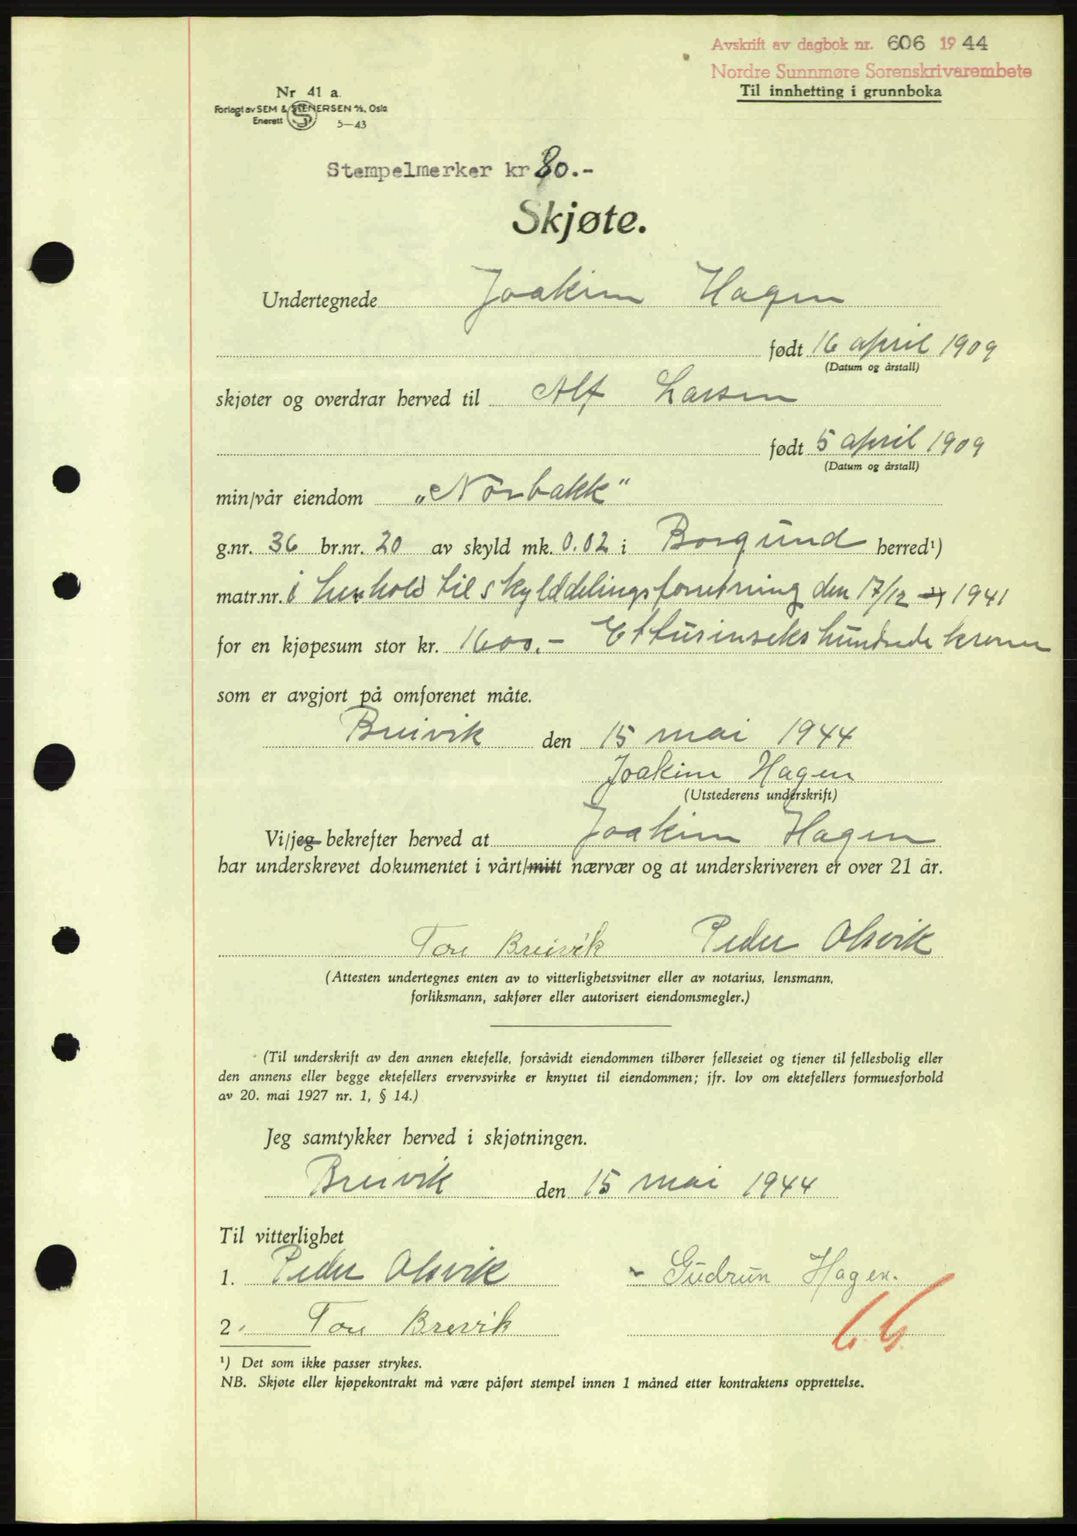 Avskrift av dagbok nr. 606 1944
Nordre Sunnmøre Sorenskrivarembete
Til innhetting i grunnboka
Nr 41 a.
Forlagt av SEM & STENERSEN A/S, Oslo
Enerett S 5—43
Stempelmerker kr 80.-
Skjøte.
Undertegnede Joakim Hagen
født 16 april 1909
(Datum og årstall)
skjøter og overdrar herved til Alf Larsen
født 5 april 1909
(Datum og årstall)
min/vår eiendom „Norbakk"
g.nr. 36 br.nr. 20 av skyld mk. 0.02 i Borgund herred¹)
matr.nr. i henhold til skylddelingsforretning den 17/12 ¹) 1941
for en kjøpesum stor kr. 1600.- Ettusinsekshundrede kroner
som er avgjort på omforenet måte.
Breivik den 15 mai 1944
Joakim Hagen
(Utstederens underskrift)
Vi/jeg bekrefter herved at Joakim Hagen
har underskrevet dokumentet i vårt/mitt nærvær og at underskriveren er over 21 år.
Tore Breivik Peder Alsvik
(Attesten undertegnes enten av to vitterlighetsvitner eller av notarius, lensmann,
forliksmann, sakfører eller autorisert eiendomsmegler.)
(Til underskrift av den annen ektefelle, forsåvidt eiendommen tilhører felleseiet og tjener til fellesbolig eller
den annens eller begge ektefellers ervervsvirke er knyttet til eiendommen; jfr. lov om ektefellers formuesforhold
av 20. mai 1927 nr. 1, § 14.)
Jeg samtykker herved i skjøtningen.
Breivik den 15 mai 1944
Til vitterlighet
1. Peder Alsvik - Gudrun Hagen.
2. Tore Brevik
¹) Det som ikke passer strykes.
NB. Skjøte eller kjøpekontrakt må være påført stempel innen 1 måned etter kontraktens opprettelse.